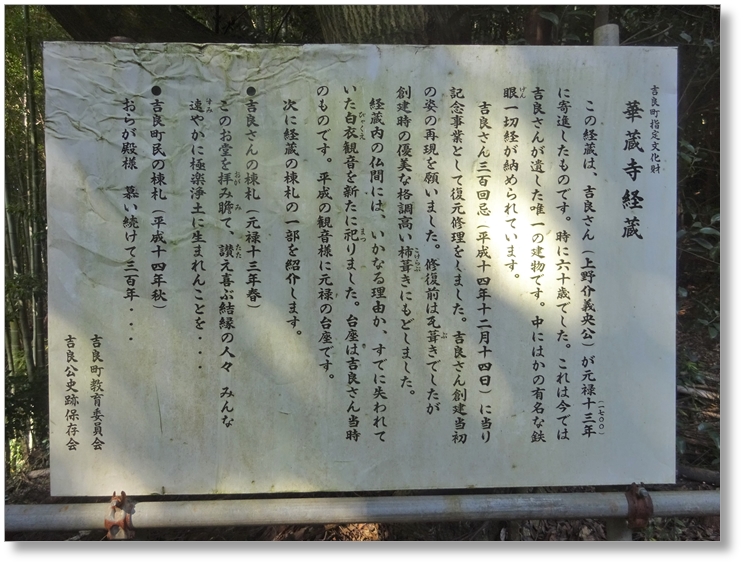 吉良町指定文化財
華蔵寺経蔵
この経蔵は、吉良さん（上野介義央公）が元禄十三年（一七〇〇）
に寄進したものです。時に六十歳でした。これは今では
吉良さんが遺した唯一の建物です。中にはかの有名な鉄
眼一切経が納められています。
吉良さん三百回忌（平成十四年十二月十四日）に当り
記念事業として復元修理をしました。吉良さん創建当初
の姿の再現を願いました。修復前は瓦葺きでしたが
創建時の優美な格調高い柿葺きにもどしました。
経蔵内の仏間には、いかなる理由か、すでに失われて
いた白衣観音を新たに祀りました。台座は吉良さん当時
のものです。平成の観音様に元禄の台座です。
次に経蔵の棟札の一部を紹介します。
●吉良さんの棟札（元禄十三年春）
このお堂を拝み眎て、讃え喜ぶ結縁の人々　みんな
速やかに極楽浄土に生まれんことを・・・
●吉良町民の棟札（平成十四年秋）
おらが殿様　慕い続けて三百年・・・
吉良町教育委員会
吉良公史跡保存会